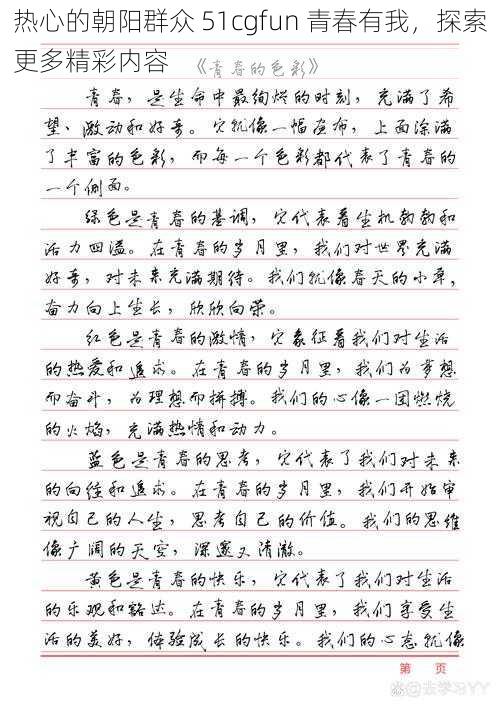 热心的朝阳群众 51cgfun 青春有我，探索
更多精彩内容
《青春的色彩》
青春，是生命中最绚烂的时刻，充满了希
望、激动和好奇。它就像一幅画布，上面涂满
了丰富的色彩，而每一个色彩都代表了青春的
一个侧面。
绿色是青春的基调，它代表着生机勃勃和
活力四溢。在青春的岁月里，我们对世界充满
好奇，对未来充满期待。我们就像春天的小草，
奋力向上生长，欣欣向荣。
红色是青春的激情，它象征着我们对生活
的热爱和追求。在青春的岁月里，我们为梦想
而奋斗，为理想而拼搏。我们的心像一团燃烧
的火焰，充满热情和动力。
蓝色是青春的思考，它代表了我们对未来
的向往和追求。在青春的岁月里，我们开始审
视自己的人生，思考自己的价值。我们的思维
像广阔的天空，深邃又清澈。
黄色是青春的快乐，它代表了我们对生活
的乐观和豁达。在青春的岁月里，我们享受生
活的美好，体验成长的快乐。我们的心态就像
第 页
@去学习YY